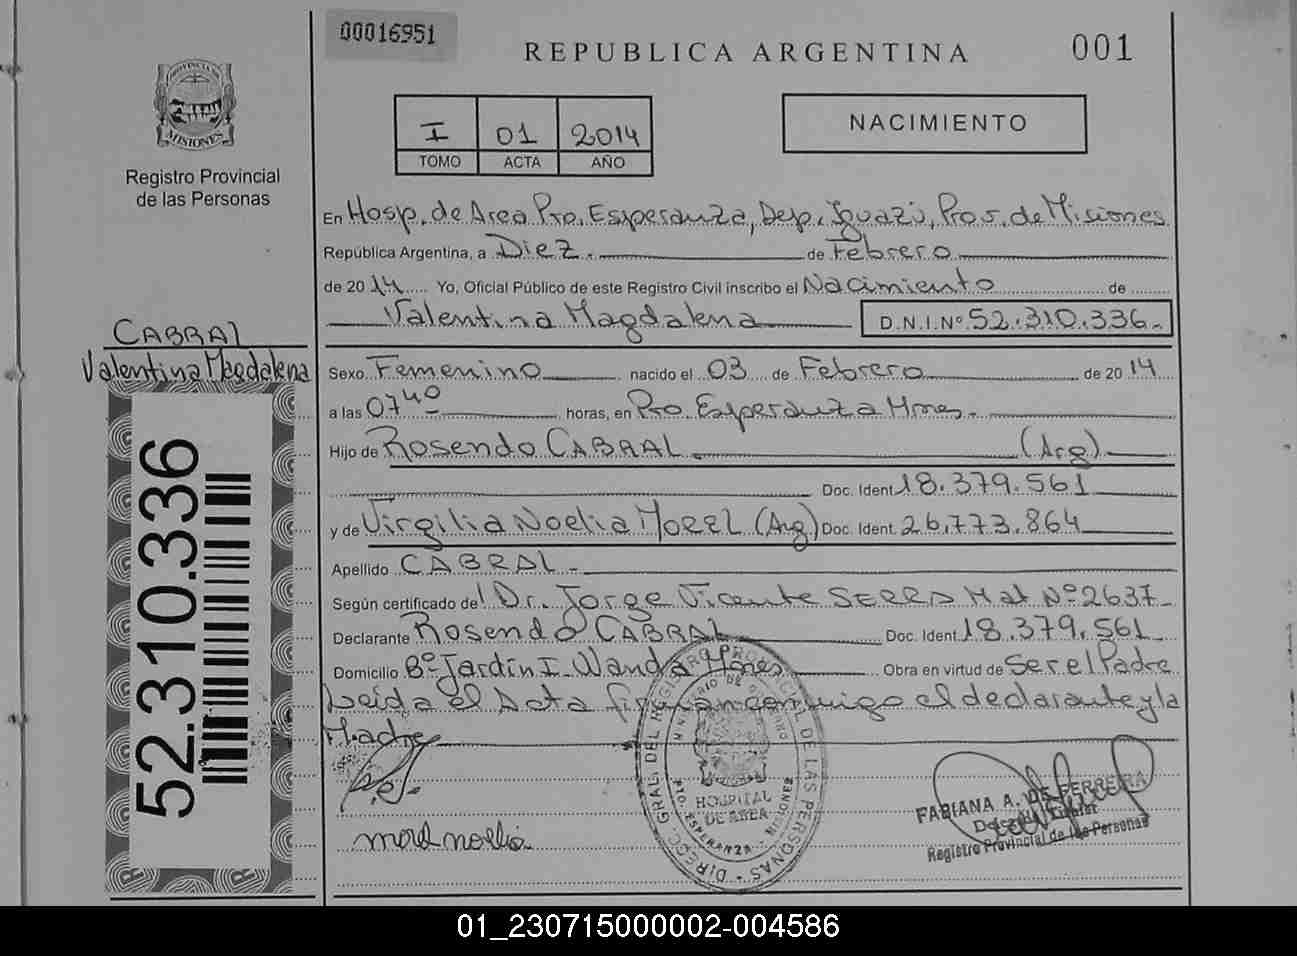 00016951
REPUBLICA ARGENTINA
001
PROVINCIA DE
MISIONES
Registro Provincial
de las Personas
I 01 2014
TOMO ACTA AÑO
NACIMIENTO
En Hosp. de Area Pto. Esperanza, Dep. Iguazú, Prov. de Misiones
República Argentina, a Diez.- de Febrero
de 2014 Yo, Oficial Público de este Registro Civil inscribo el Nacimiento de
Valentina Magdalena D.N.I.Nº 52.310.336.-
CABRAL
Valentina Magdalena
52.310.336
Sexo Femenino nacido el 03 de Febrero de 2014
a las 07 40 horas, en Pto Esperanza Mnes.-
Hijo de Rosendo CABRAL.- (Arg)
Doc. Ident. 18.379.561
y de Virgilia Noelia MOREL (Arg) Doc. Ident. 26.773.864
Apellido CABRAL.-
Según certificado del Dr. Jorge Vicente SERRA Mat Nº 2637
Declarante Rosendo CABRAL Doc. Ident. 18.379.561
Domicilio Bº Jardín I Wanda Mnes Obra en virtud de Ser el Padre
Leída el Acta firman conmigo el declarante y la
Madre
DIRECC. GRAL. DEL REGISTRO PROVINCIAL DE LAS PERSONAS
MINISTERIO DE GOBIERNO
HOSPITAL
DE AREA
PTO. ESPERANZA - MISIONES
morel noelia
FABIANA A. DE FERREIRA
Registro Provincial de las Personas
01_230715000002-004586